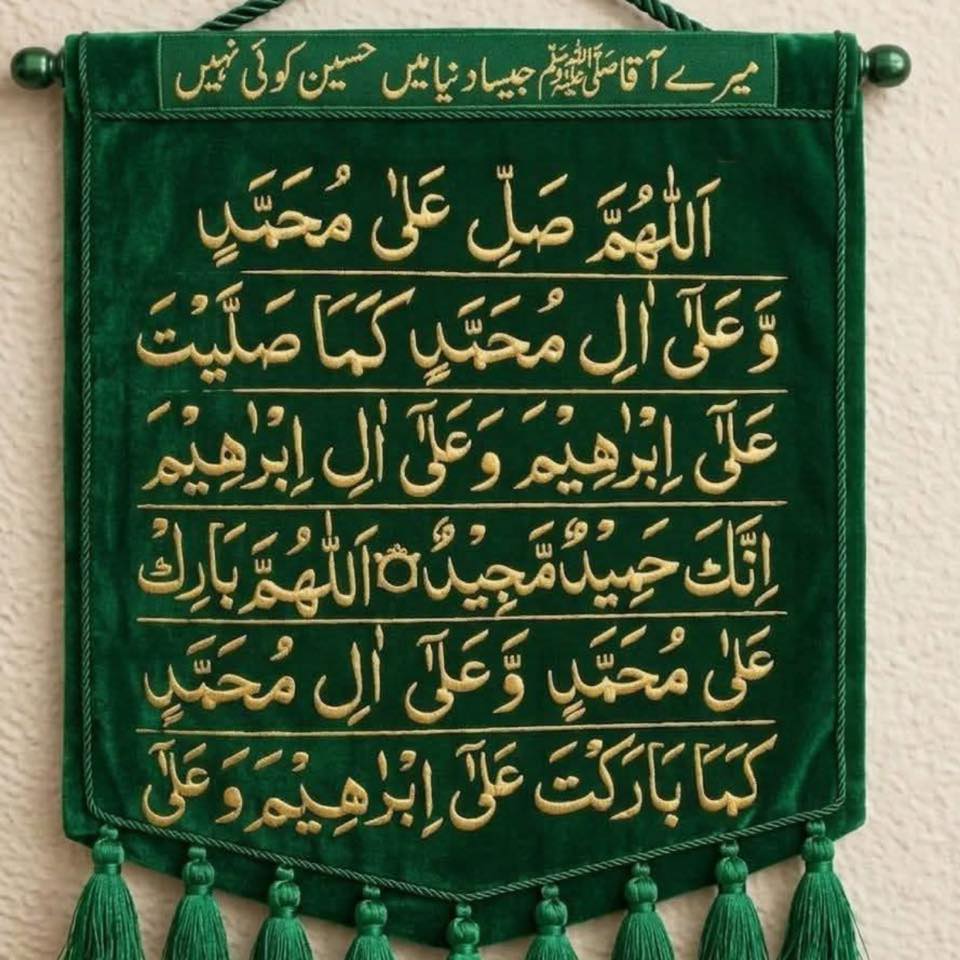 میرے آقا ﷺ جیسا دنیا میں حسین کوئی نہیں
اَللّٰهُمَّ صَلِّ عَلٰی مُحَمَّدٍ
وَّعَلٰٓی اٰلِ مُحَمَّدٍ کَمَا صَلَّیْتَ
عَلٰٓی اِبْرٰهِیْمَ وَعَلٰٓی اٰلِ اِبْرٰهِیْمَ
اِنَّكَ حَمِیْدٌ مَّجِیْدٌ اَللّٰهُمَّ بَارِكْ
عَلٰی مُحَمَّدٍ وَّعَلٰٓی اٰلِ مُحَمَّدٍ
کَمَا بَارَکْتَ عَلٰٓی اِبْرٰهِیْمَ وَعَلٰٓی